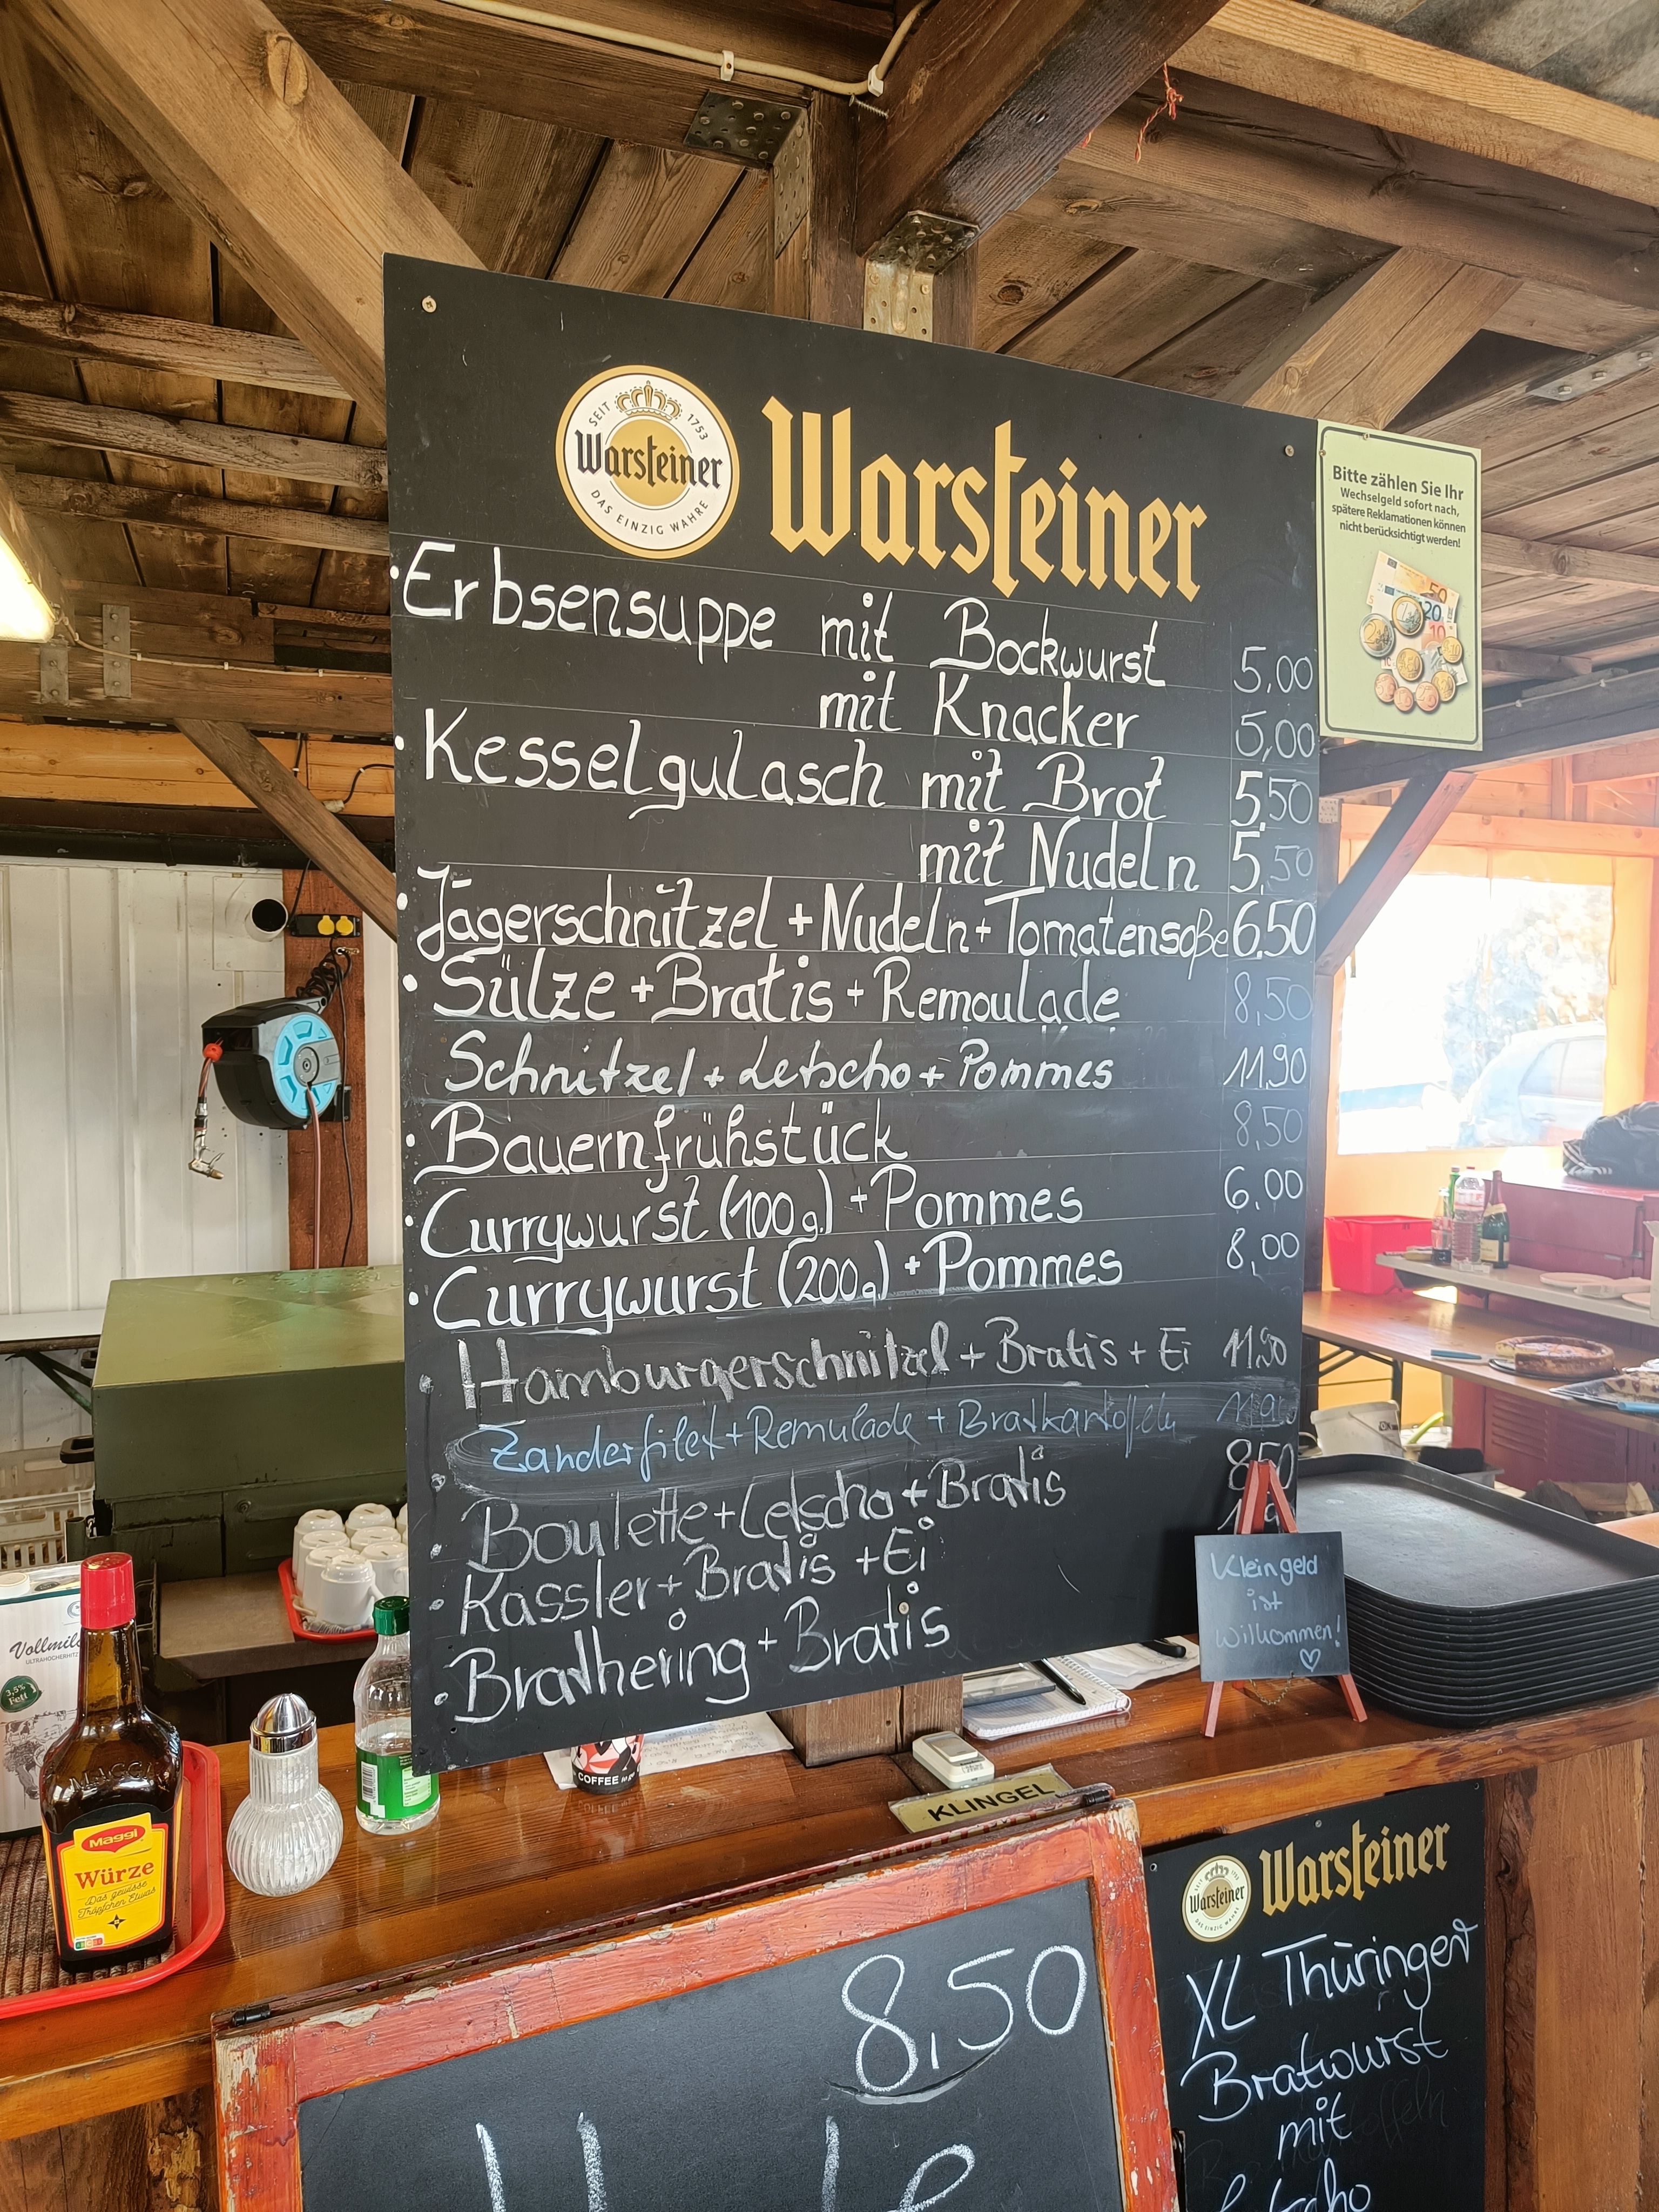 SEIT 1753
Warsteiner
DAS EINZIG WAHRE
Warsteiner
• Erbsensuppe mit Bockwurst 5,00
mit Knacker 5,00
• Kesselgulasch mit Brot 5,50
mit Nudeln 5,50
• Jägerschnitzel + Nudeln + Tomatensoße 6,50
• Sülze + Bratis + Remoulade 8,50
Schnitzel + Letscho + Pommes 11,90
• Bauernfrühstück 8,50
• Currywurst (100g) + Pommes 6,00
• Currywurst (200g) + Pommes 8,00
• Hamburgerschnitzel + Bratis + Ei 11,90
• Zanderfilet + Remulade + Bratkartoffeln
• Boulette + Letscho + Bratis 8,50
• Kassler + Bratis + Ei
• Brathering + Bratis
Bitte zählen Sie Ihr
Wechselgeld sofort nach,
spätere Reklamationen können
nicht berücksichtigt werden!
Kleingeld
ist
Wilkommen!
Vollmilch
ULTRAHOCHERHITZ
3,5%
Fett
MAGGI
Maggi
Würze
Das gewisse
Tröpfchen Etwas
COFFEE to go
KLINGEL
8,50
Warsteiner
Warsteiner
XL Thüringer
Bratwurst
mit